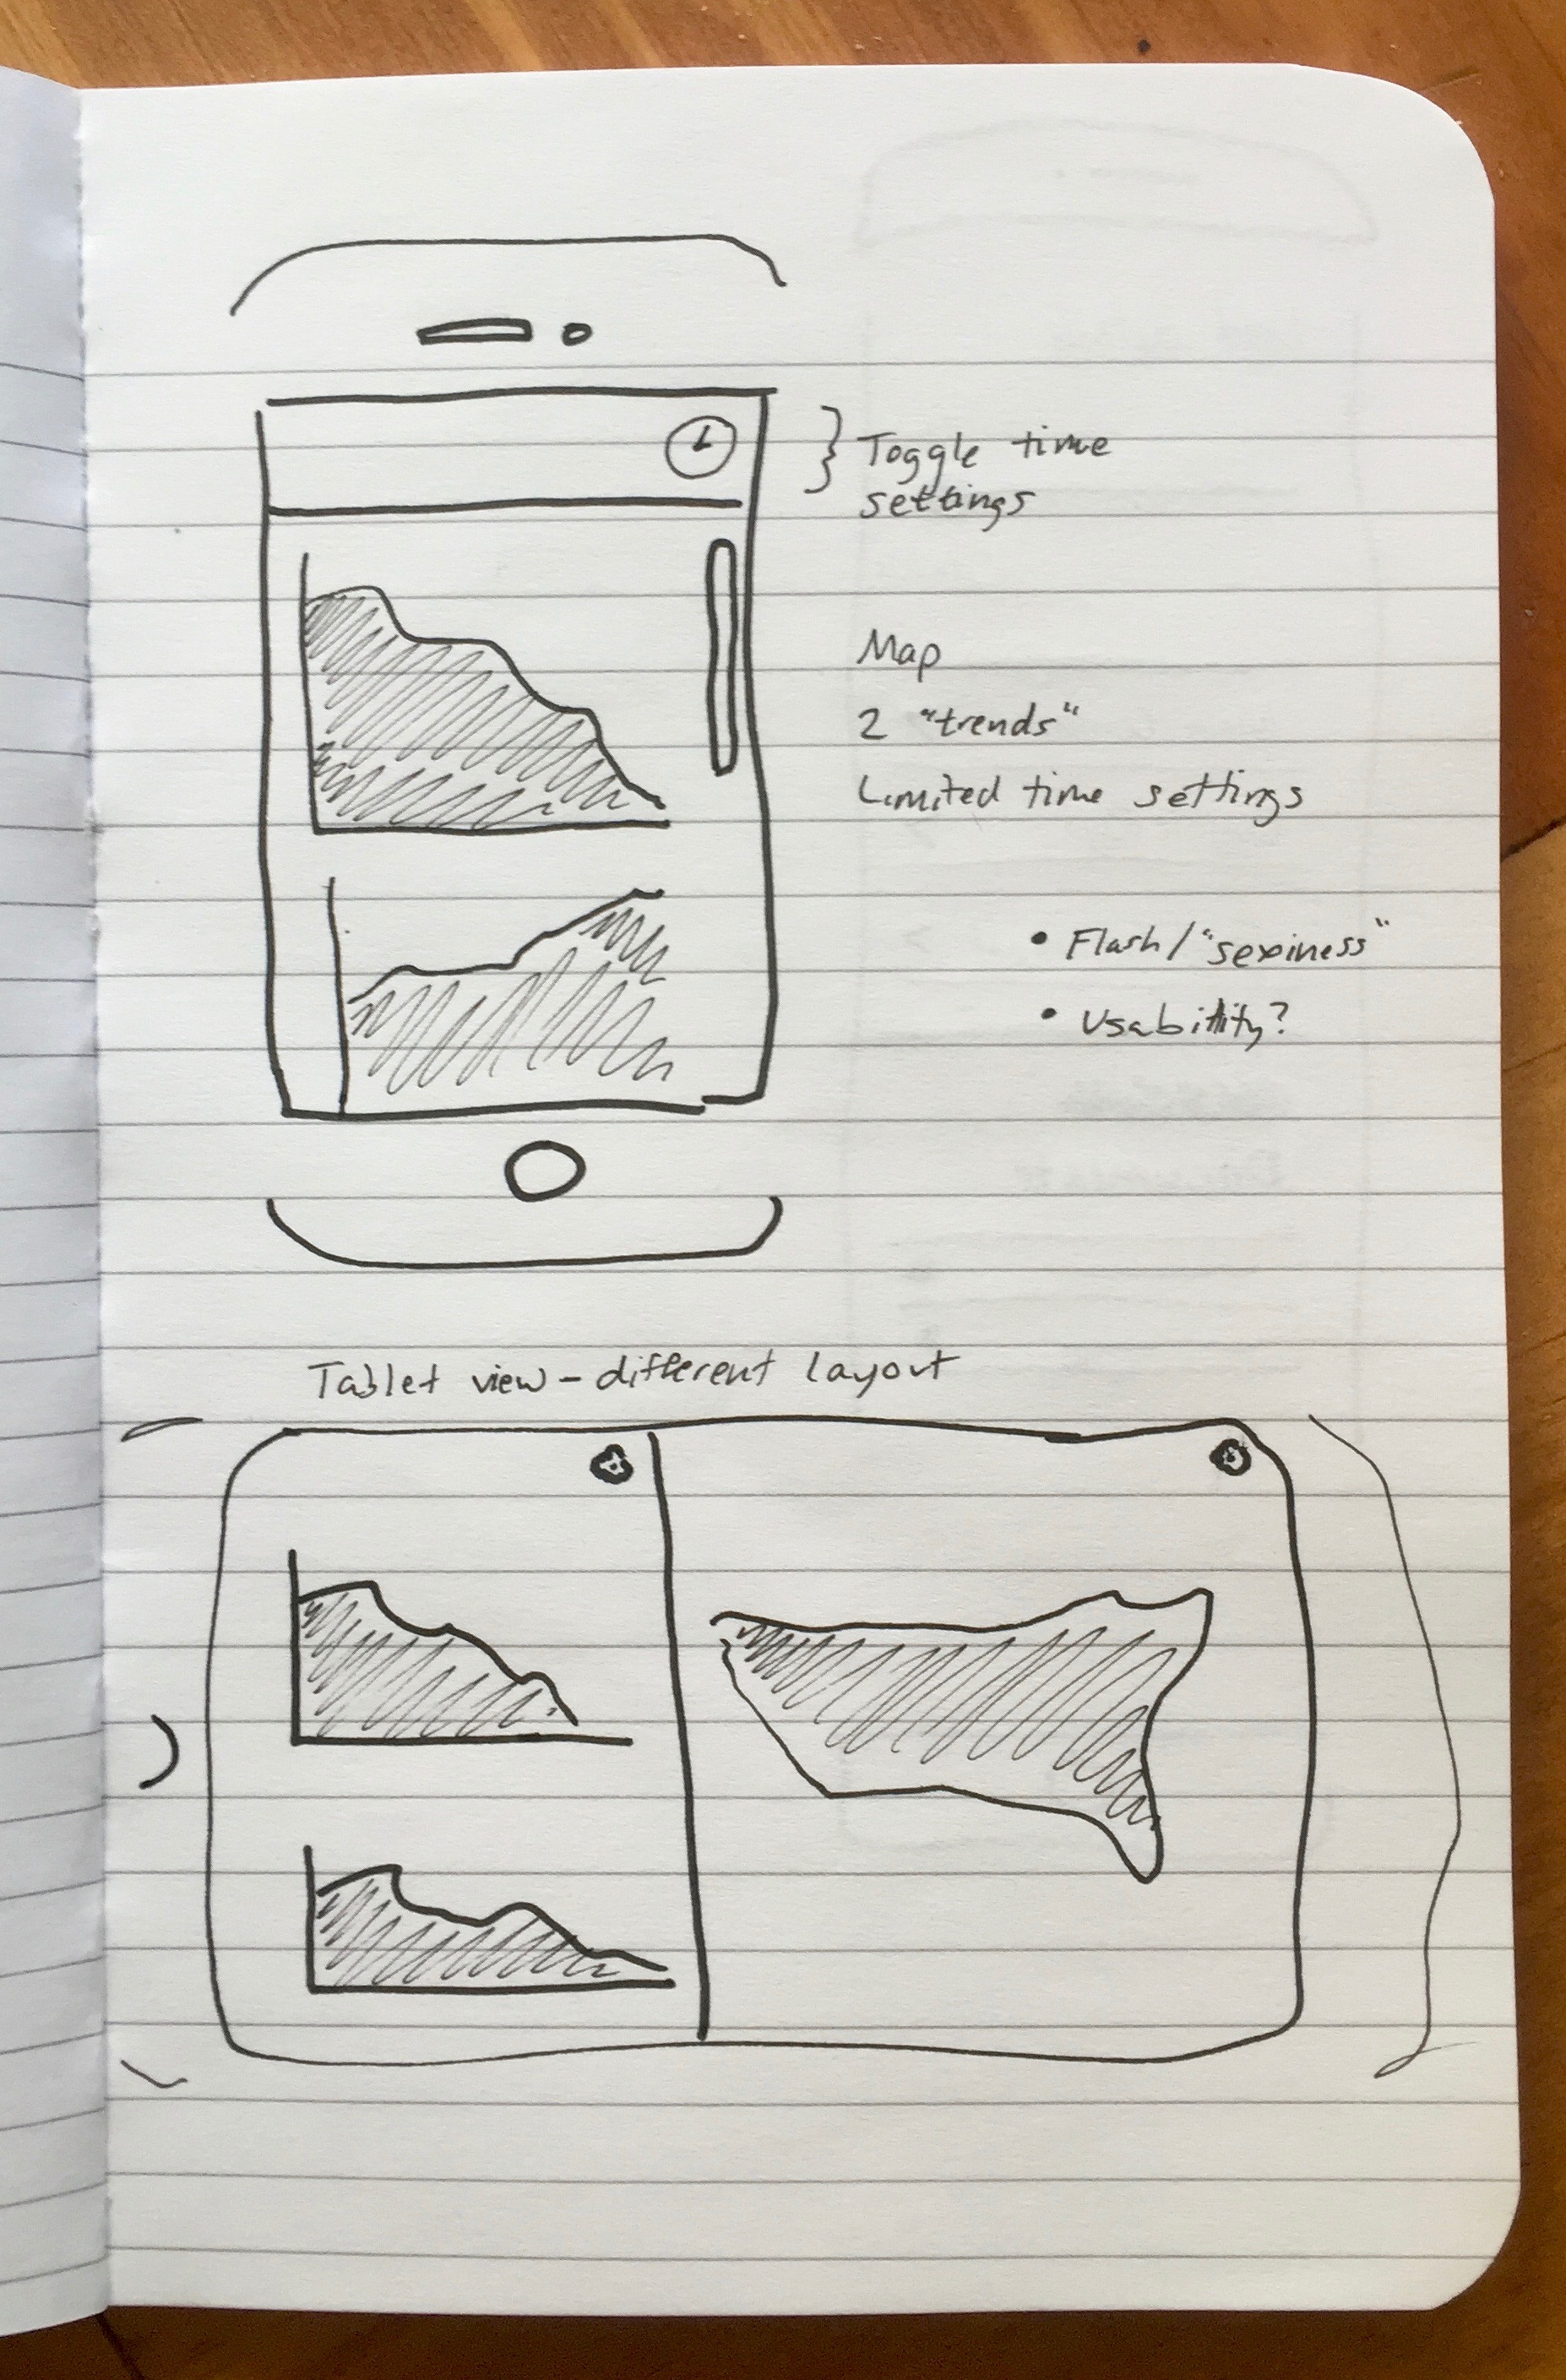 Toggle time
settings
Map
2 "trends"
Limited time settings
• Flash/"sexiness"
• Usability?
Tablet view - different layout